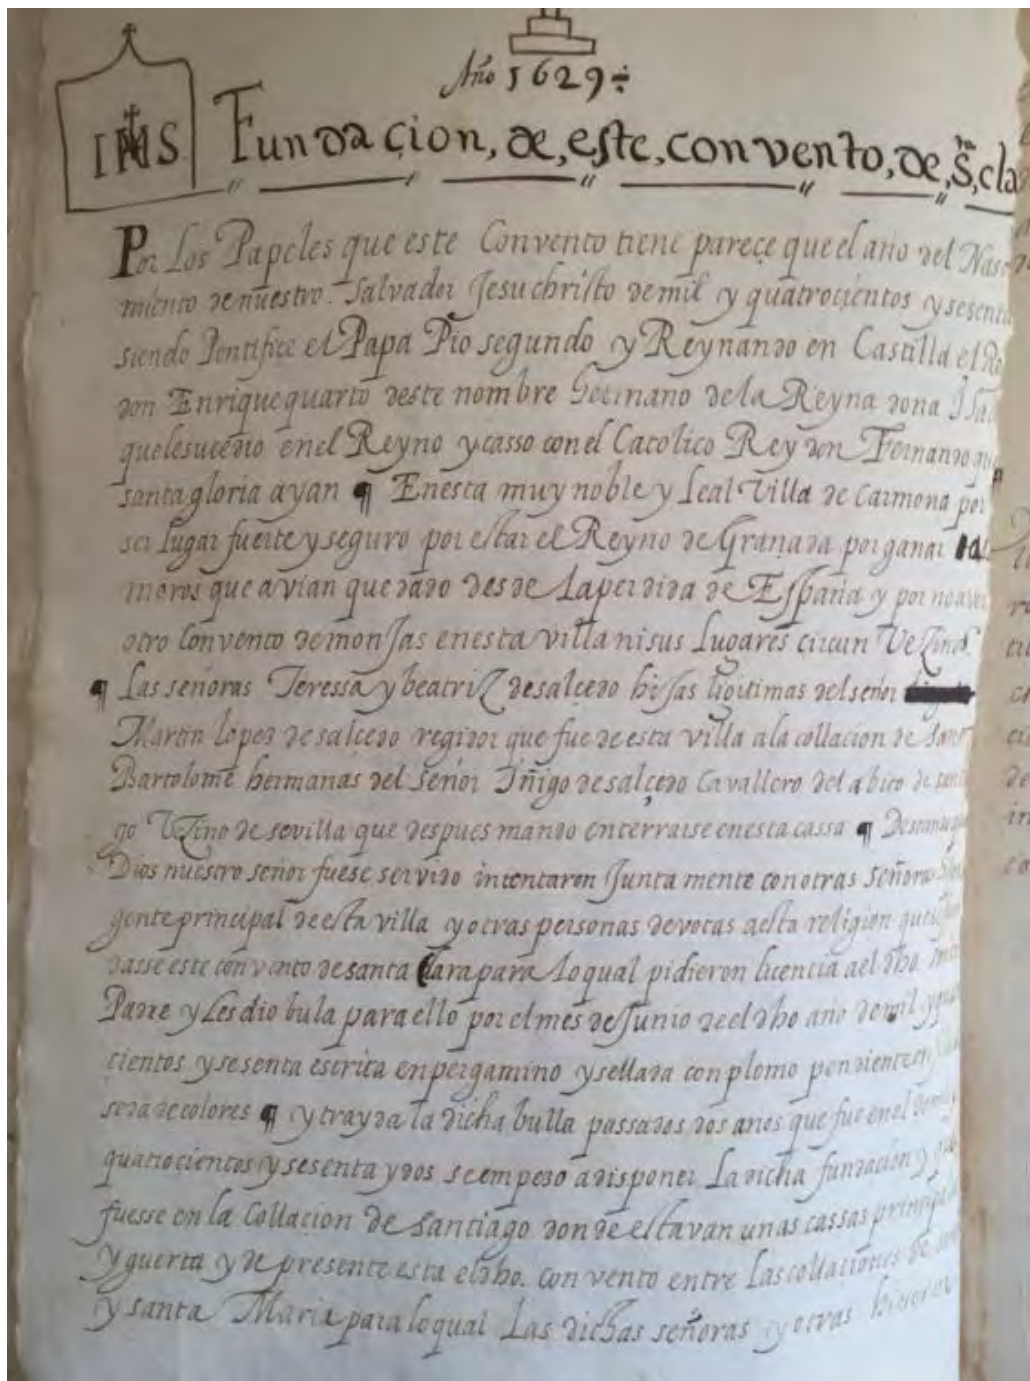 Año 1629
IHS
Fundaçion, de, este, convento, de, S.ta, cla
Por Los Papeles que este Convento tiene pareçe que el año del Nasci
miento de nuestro Salvador Jesuchristo de mil y quatrocientos y sesenta
siendo Pontifice el Papa Pio segundo y Reynando en Castilla el Rey
don Enrique quarto deste nombre hermano de la Reyna dona Isa
que le sucedio en el Reyno y casso con el Catolico Rey don Fernando que
santa gloria ayan ¶ En esta muy noble y Leal Villa de Carmona por
ser lugar fuerte y seguro por estar el Reyno de Granada por ganar
moros que avian quedado desde La perdida de España y por no aver
otro Convento de monjas en esta villa ni sus Lugares circun Vezinos.
¶ Las señoras Teressa y beatriz de salcedo hijas ligitimas del señor
Martin lopez de salcedo regidor que fue de esta villa a la collacion de sant
Bartolome hermanas del Señor Iñigo de salçedo Cavallero del abito de santia
go Vezino de sevilla que despues mando enterrarse en esta cassa ¶
Dios nuestro señor fuese servido intentaron Junta mente con otras señoras
gente principal de esta villa y otras personas devotas a esta religion que
dasse este convento de santa Clara para Lo qual pidieron licencia a el dho
Padre y Les dio bula para ello por el mes de Junio de el dho año de mil y quatro
cientos y sesenta escrita en pergamino y sellada con plomo pendiente en
seda de colores ¶ y trayda la dicha bulla passados dos anos que fue en el de mil y
quatrocientos y sesenta y dos se empeso a disponer La dicha fundacion y que
fuesse en la Collacion de Santiago donde estavan unas cassas principales
y guerta y de presente esta el dho. convento entre Las collaciones de
y santa Maria para lo qual Las dichas señoras y otras hicieron